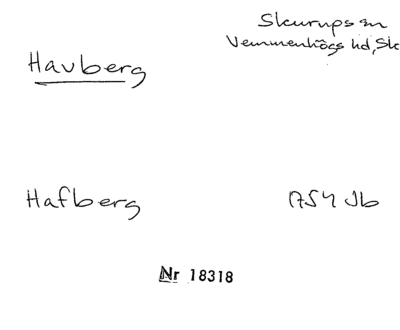 Skurups sn
Vemmenhögs hd, Sk
Havberg
Hafberg
1754 Jb
Nr 18318